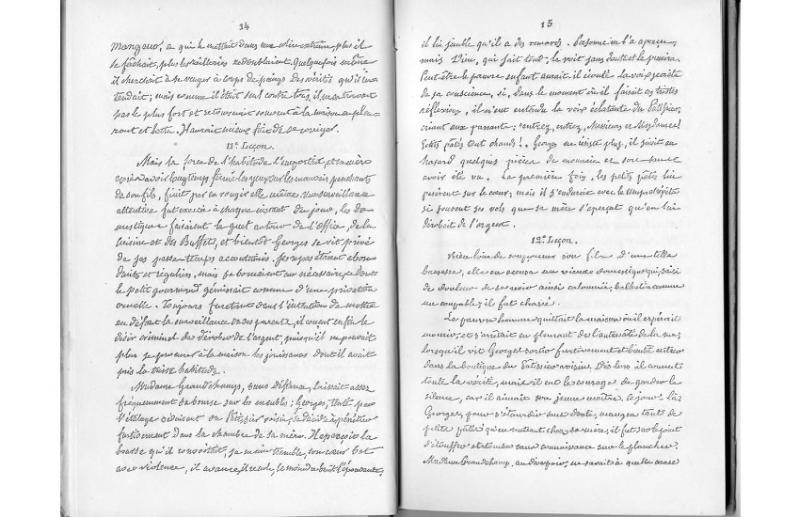 14
Mangeur, ce qui le mettait dans une colère extrême, plus il
se fâchait, plus les railleries redoublaient. Quelquefois même
il cherchait à se venger à coups de poings des vérités qu'il en-
tendait; mais comme il était seul contre tous, il ne se trouvait
pas le plus fort et retournait souvent à la maison en pleu-
rant et battu. Il aurait mieux fait de se corriger.
11e. Leçon.
Mais la force de l'habitude l'emportait, et sa mère
après avoir longtemps fermé les yeux sur les mauvais penchants
de son fils, finit par en rougir elle même. Une surveillance
attentive fut exercée à chaque instant du jour, les do-
mestiques faisaient le guet autour de l'Office, de la
cuisine et des Buffets, et bientôt Georges se vit privé
de ses passe-temps accoutumés. Ses repas étaient abon-
dants et réguliers, mais se bornaient au nécessaire, et
le petit gourmand gémissait comme d'une privation
cruelle. Toujours furetant dans l'intention de mettre
en défaut la surveillance de ses parents, il conçut enfin le
désir criminel de dérober de l'argent, puisqu'il ne pouvait
plus se procurer à la maison les jouissances dont il avait
pris la triste habitude.
Madame Grandchamps, sans défiance, laissait assez
fréquemment sa bourse sur les meubles; Georges, par
l'étalage séduisant du Pâtissier voisin, se décide à pénétrer
furtivement dans la chambre de sa mère. Il aperçoit la
bourse qu'il convoitait, sa main tremble, son cœur bat
avec violence, il avance, il recule, le moindre bruit l'épouvante,
15
il lui semble qu'il a des remords. Personne ne l'a aperçu,
mais Dieu, qui fait tout, le voit sans doute et le punira.
Peut être le pauvre enfant aurait-il écouté la voix secrète
de sa conscience, si, dans le moment où il faisait ces tristes
réflexions, il n'eut entendu la voix éclatante du Pâtissier,
criant aux passants: "entrez, entrez, Messieurs et Mesdames!
Petits pâtés tout chauds!". Georges ne résiste plus, il saisit au
hasard quelques pièces de monnaie et sort sans
avoir été vu. La première fois, les petits pâtés lui
pesèrent sur le cœur; mais il s'endurcit avec le temps et répéta
si souvent ses vols que sa mère s'aperçut qu'on lui
dérobait de l'argent.
12e. Leçon.
Bien loin de soupçonner son fils d'une telle
bassesse, elle en accusa un vieux domestique qui, saisi
de douleur de se voir ainsi calomnié, balbutia comme
un coupable; il fut chassé.
Le pauvre homme quittait la maison où il espérait
mourir, et s'en allait en pleurant de l'autre côté de la rue,
lorsqu'il vit Georges sortir furtivement et bientôt entrer
dans la boutique du Pâtissier voisin. Dès lors il connut
toute la vérité, mais il eut le courage de garder le
silence, car il aimait son jeune maître. Ce jour-là
Georges, pour s'étourdir sans doute, mangea tant de
petits pâtés qu'en rentrant chez sa mère, il fut sur le point
d'étouffer et tomba sans connaissance sur le plancher.
Madame Grandchamp, au désespoir, ne savait à quelle cause